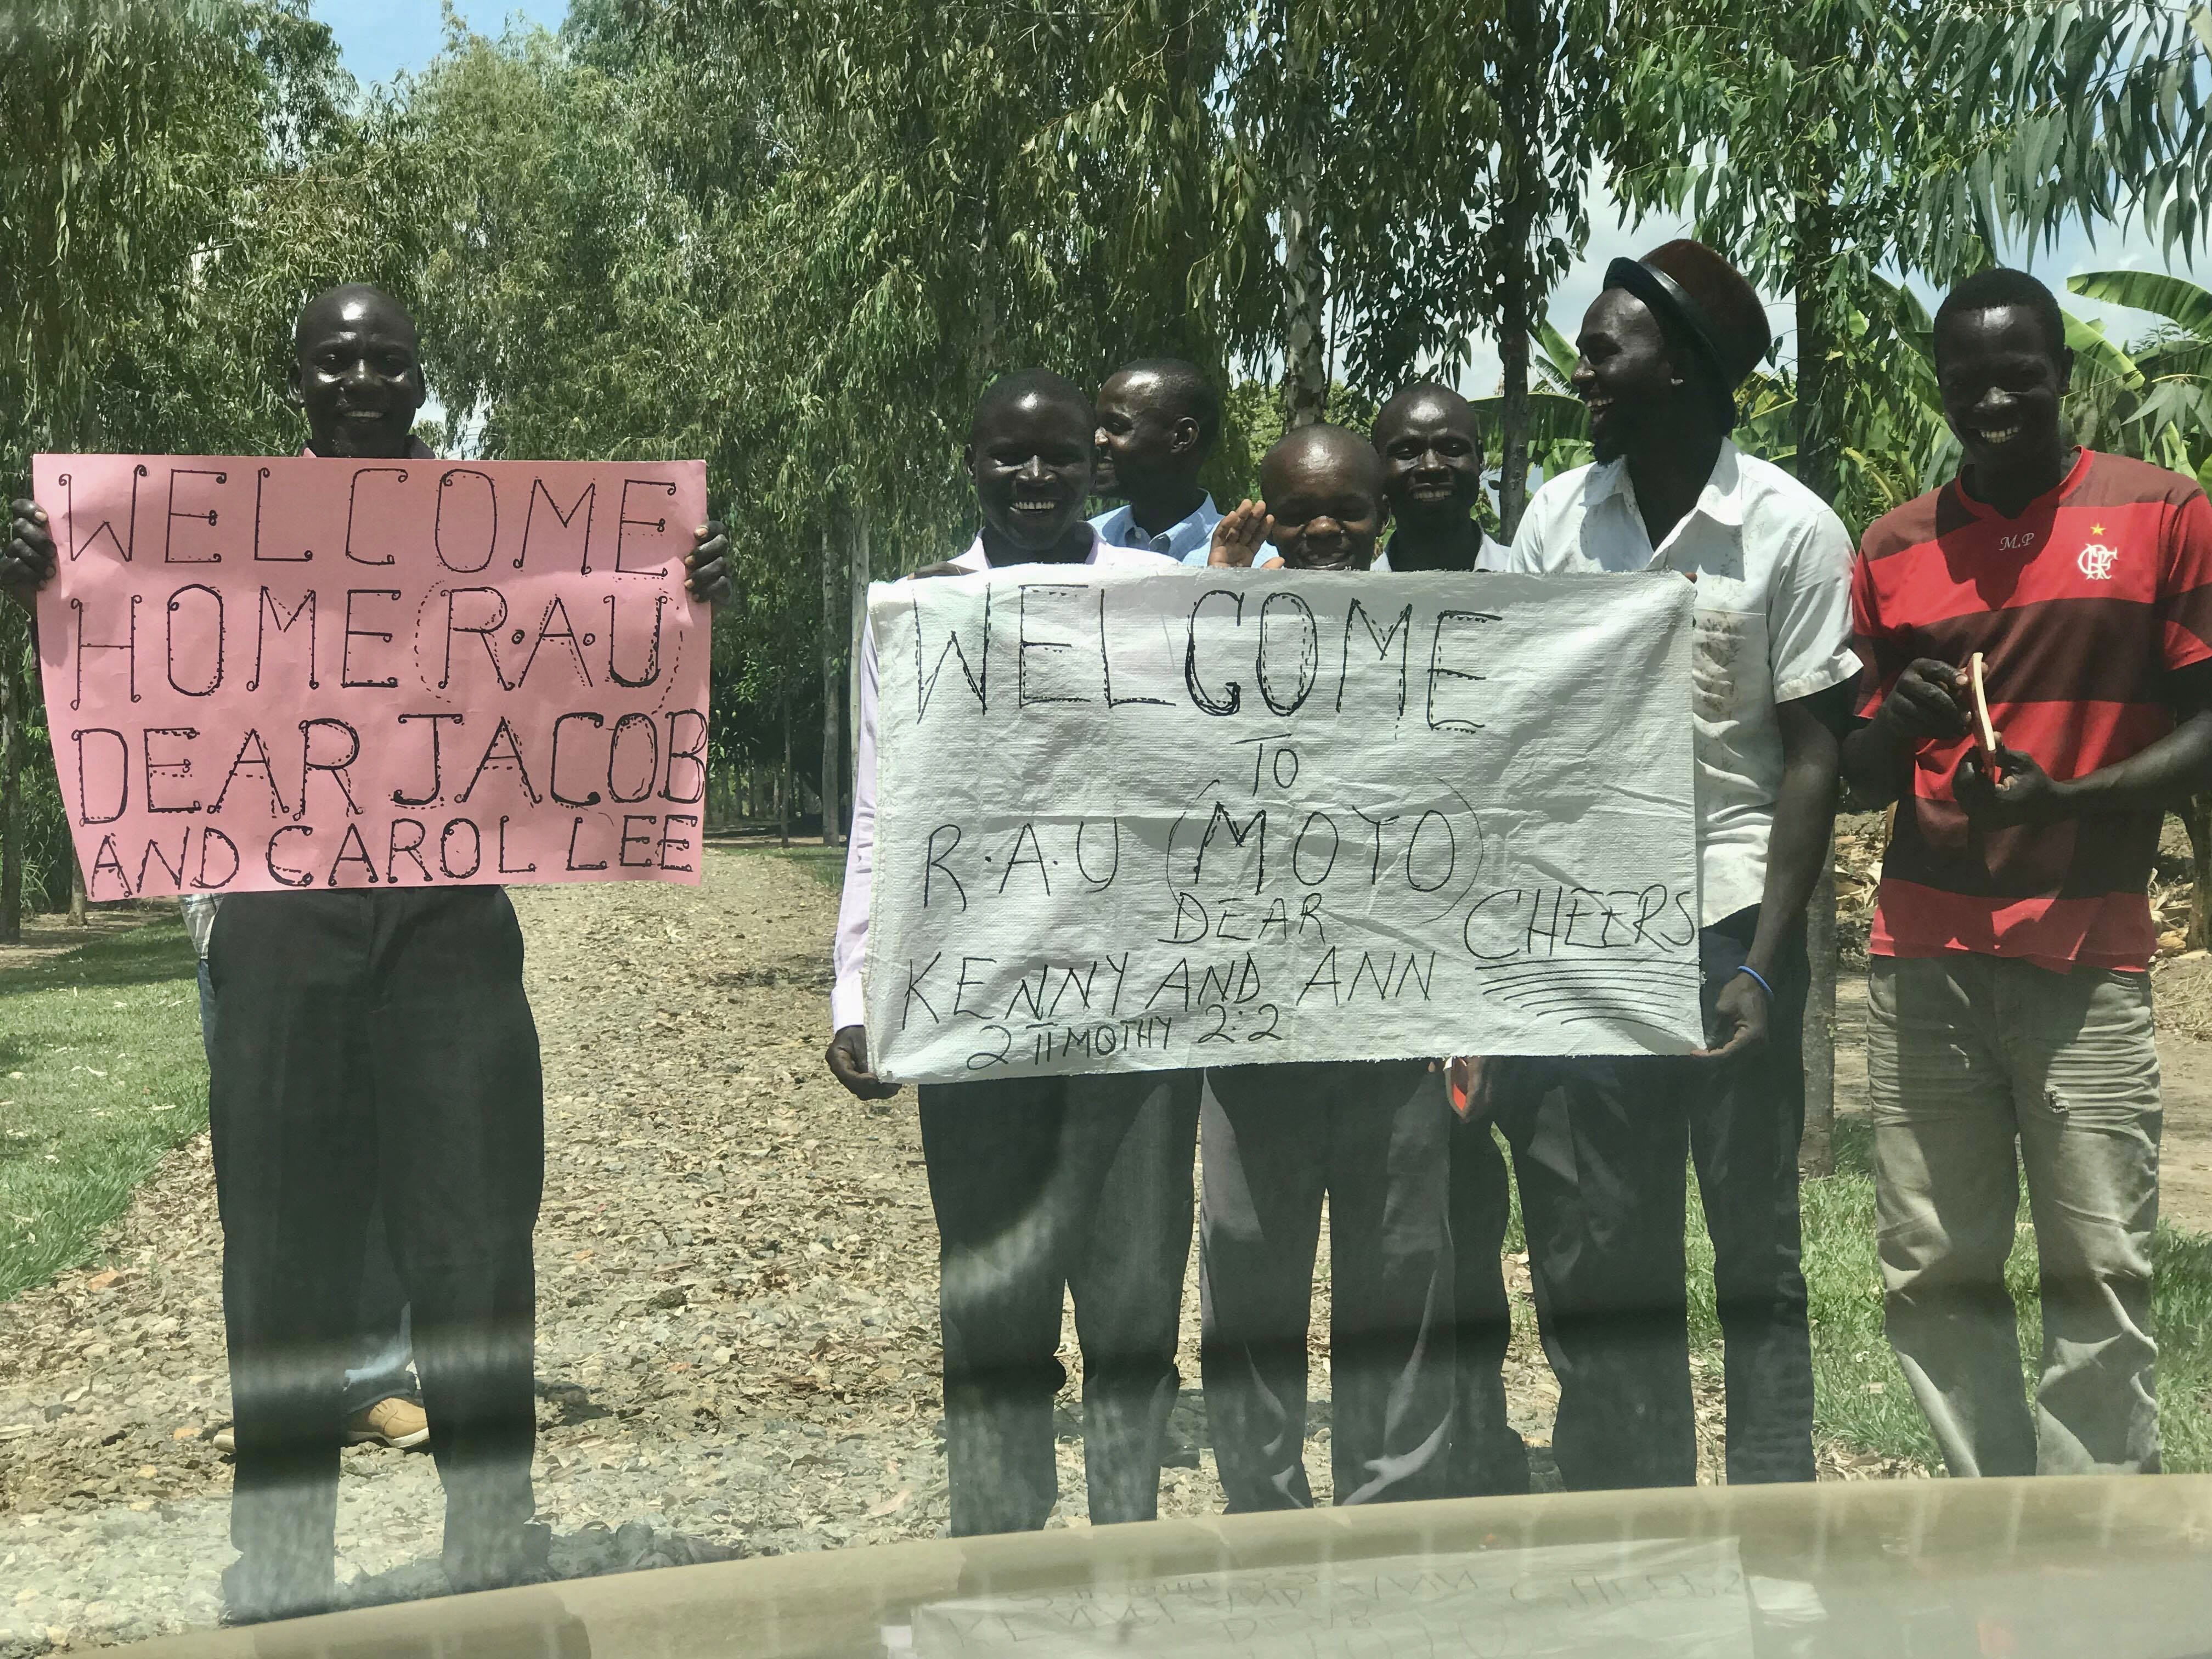 WELCOME
HOME R.A.U
DEAR JACOB
AND CAROL LEE
WELCOME
TO
R.A.U MOYO
DEAR
CHEERS
KENNY AND ANN
2 TIMOTHY 2:2
M.P